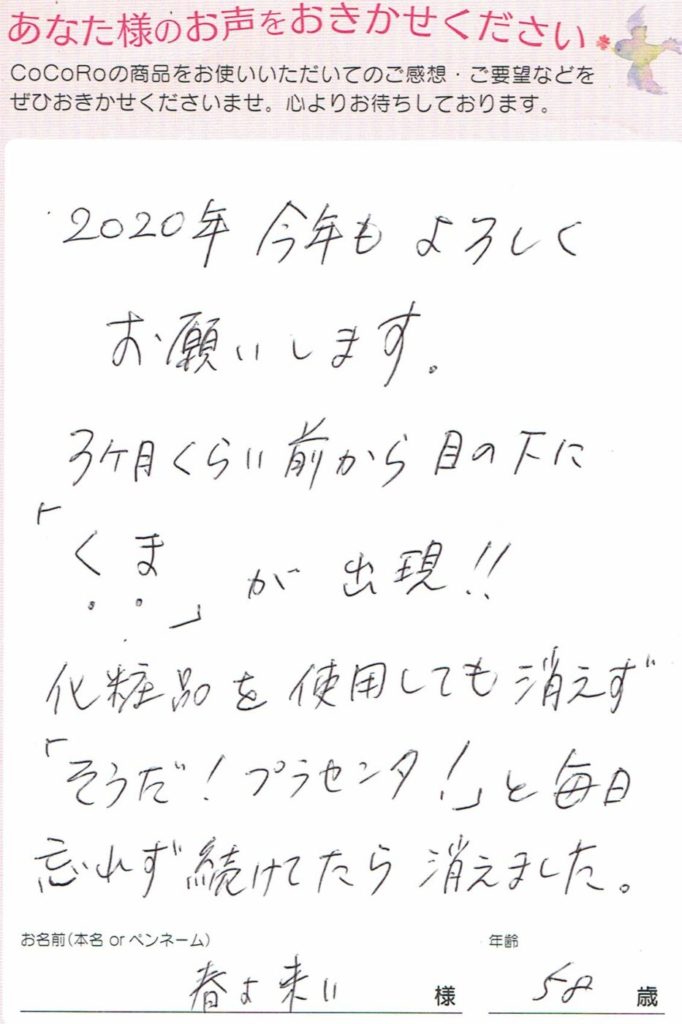 あなた様のお声をおきかせください
CoCoRoの商品をお使いいただいてのご感想・ご要望などを
ぜひおきかせくださいませ。心よりお待ちしております。
2020年 今年も よろしく
お願いします。
3ケ月くらい前から 目の下に
「くま」が 出現!!
化粧品を使用しても消えず
「そうだ!プラセンタ!」と毎日
忘れず続けてたら消えました。
お名前(本名 or ペンネーム)
年齢
春よ来い 様
58 歳